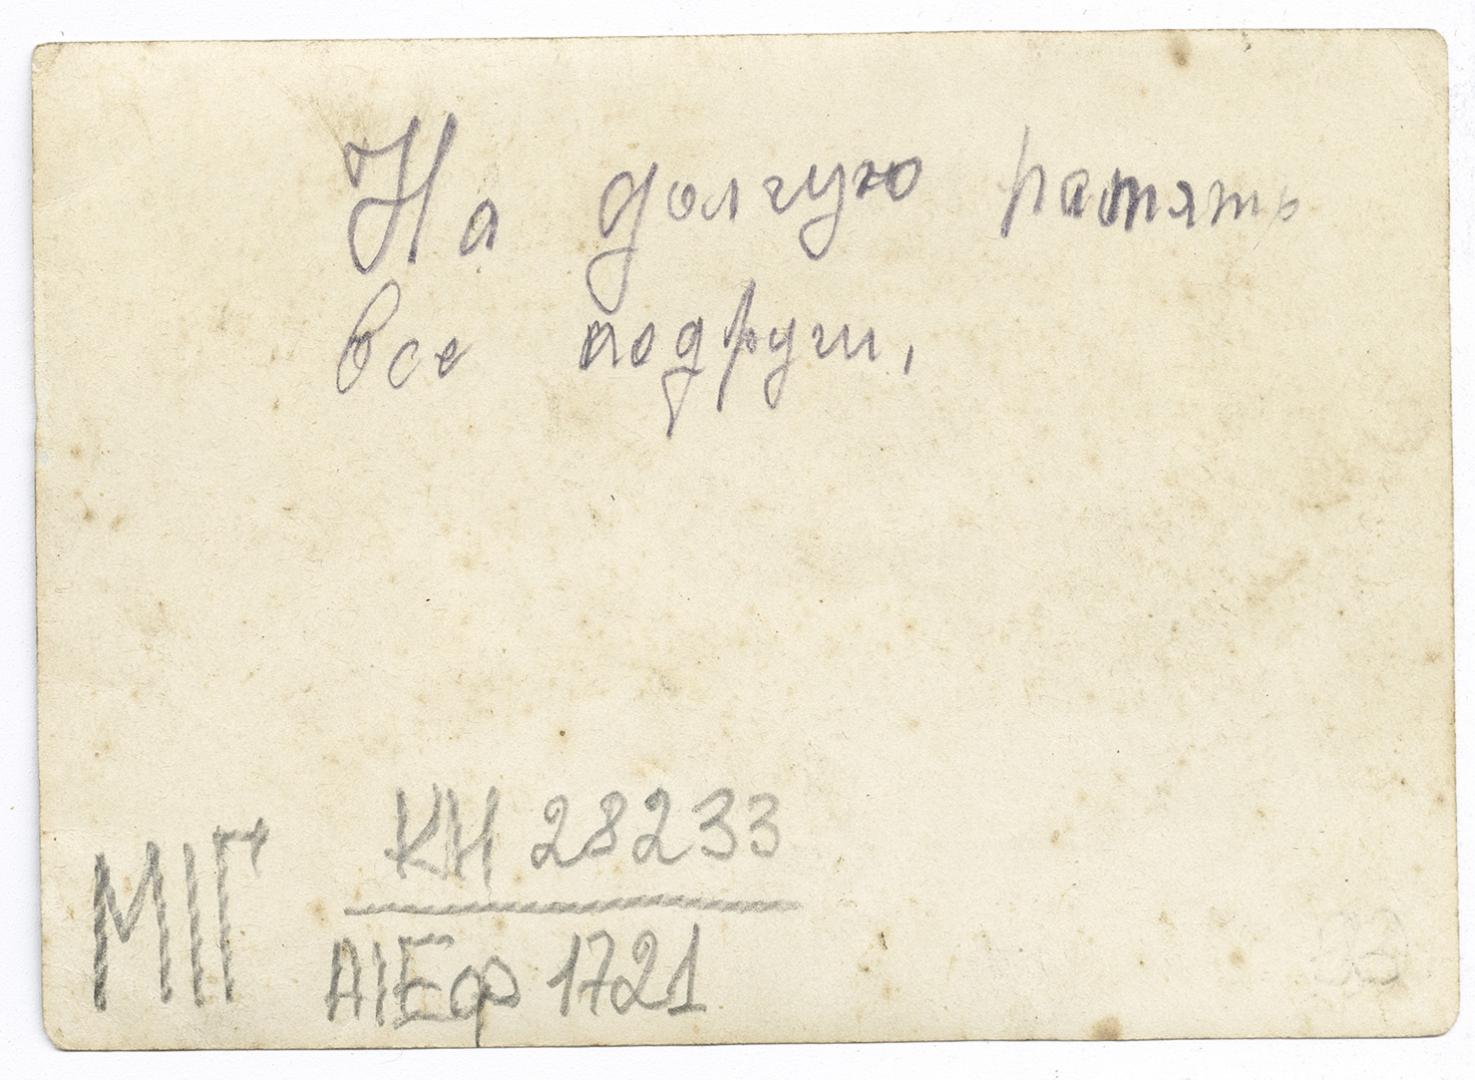 На долгую память
все подруги,
МІГ
КН 28233
АІЕФ 1721